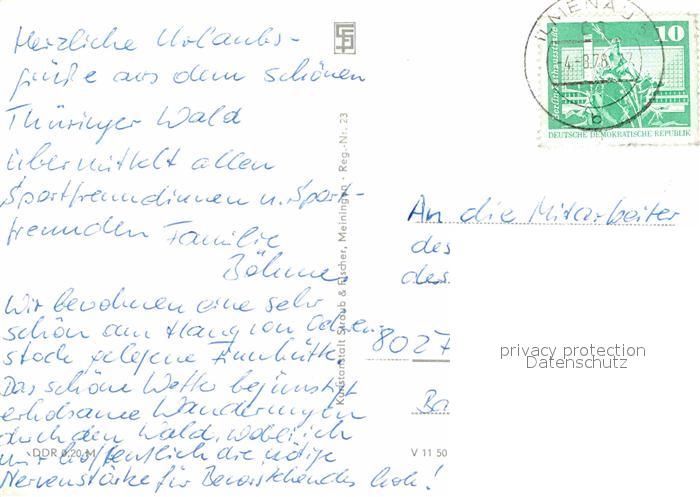 Herzliche Urlaubs-
grüße aus dem schönen
Thüringer Wald
übermittelt allen
Sportfreundinnen u. Sport-
freunden Familie
Böhme.
Wir bewohnen eine sehr
schön am Hang von
stock gelegene
Das schöne Wetter begünstigt
erholsame Wanderungen
durch den Wald, wobei ich
mir hoffentlich die nötige
Nervenstärke für Bevorstehendes hole!
DDR 0,20 M
Kunstanstalt Straub & Fischer, Meiningen · Reg.-Nr. 23
V 11 50
ILMENAU
b
10
DEUTSCHE DEMOKRATISCHE REPUBLIK
An die Mitarbeiter
des
des
8027
privacy protection
Datenschutz